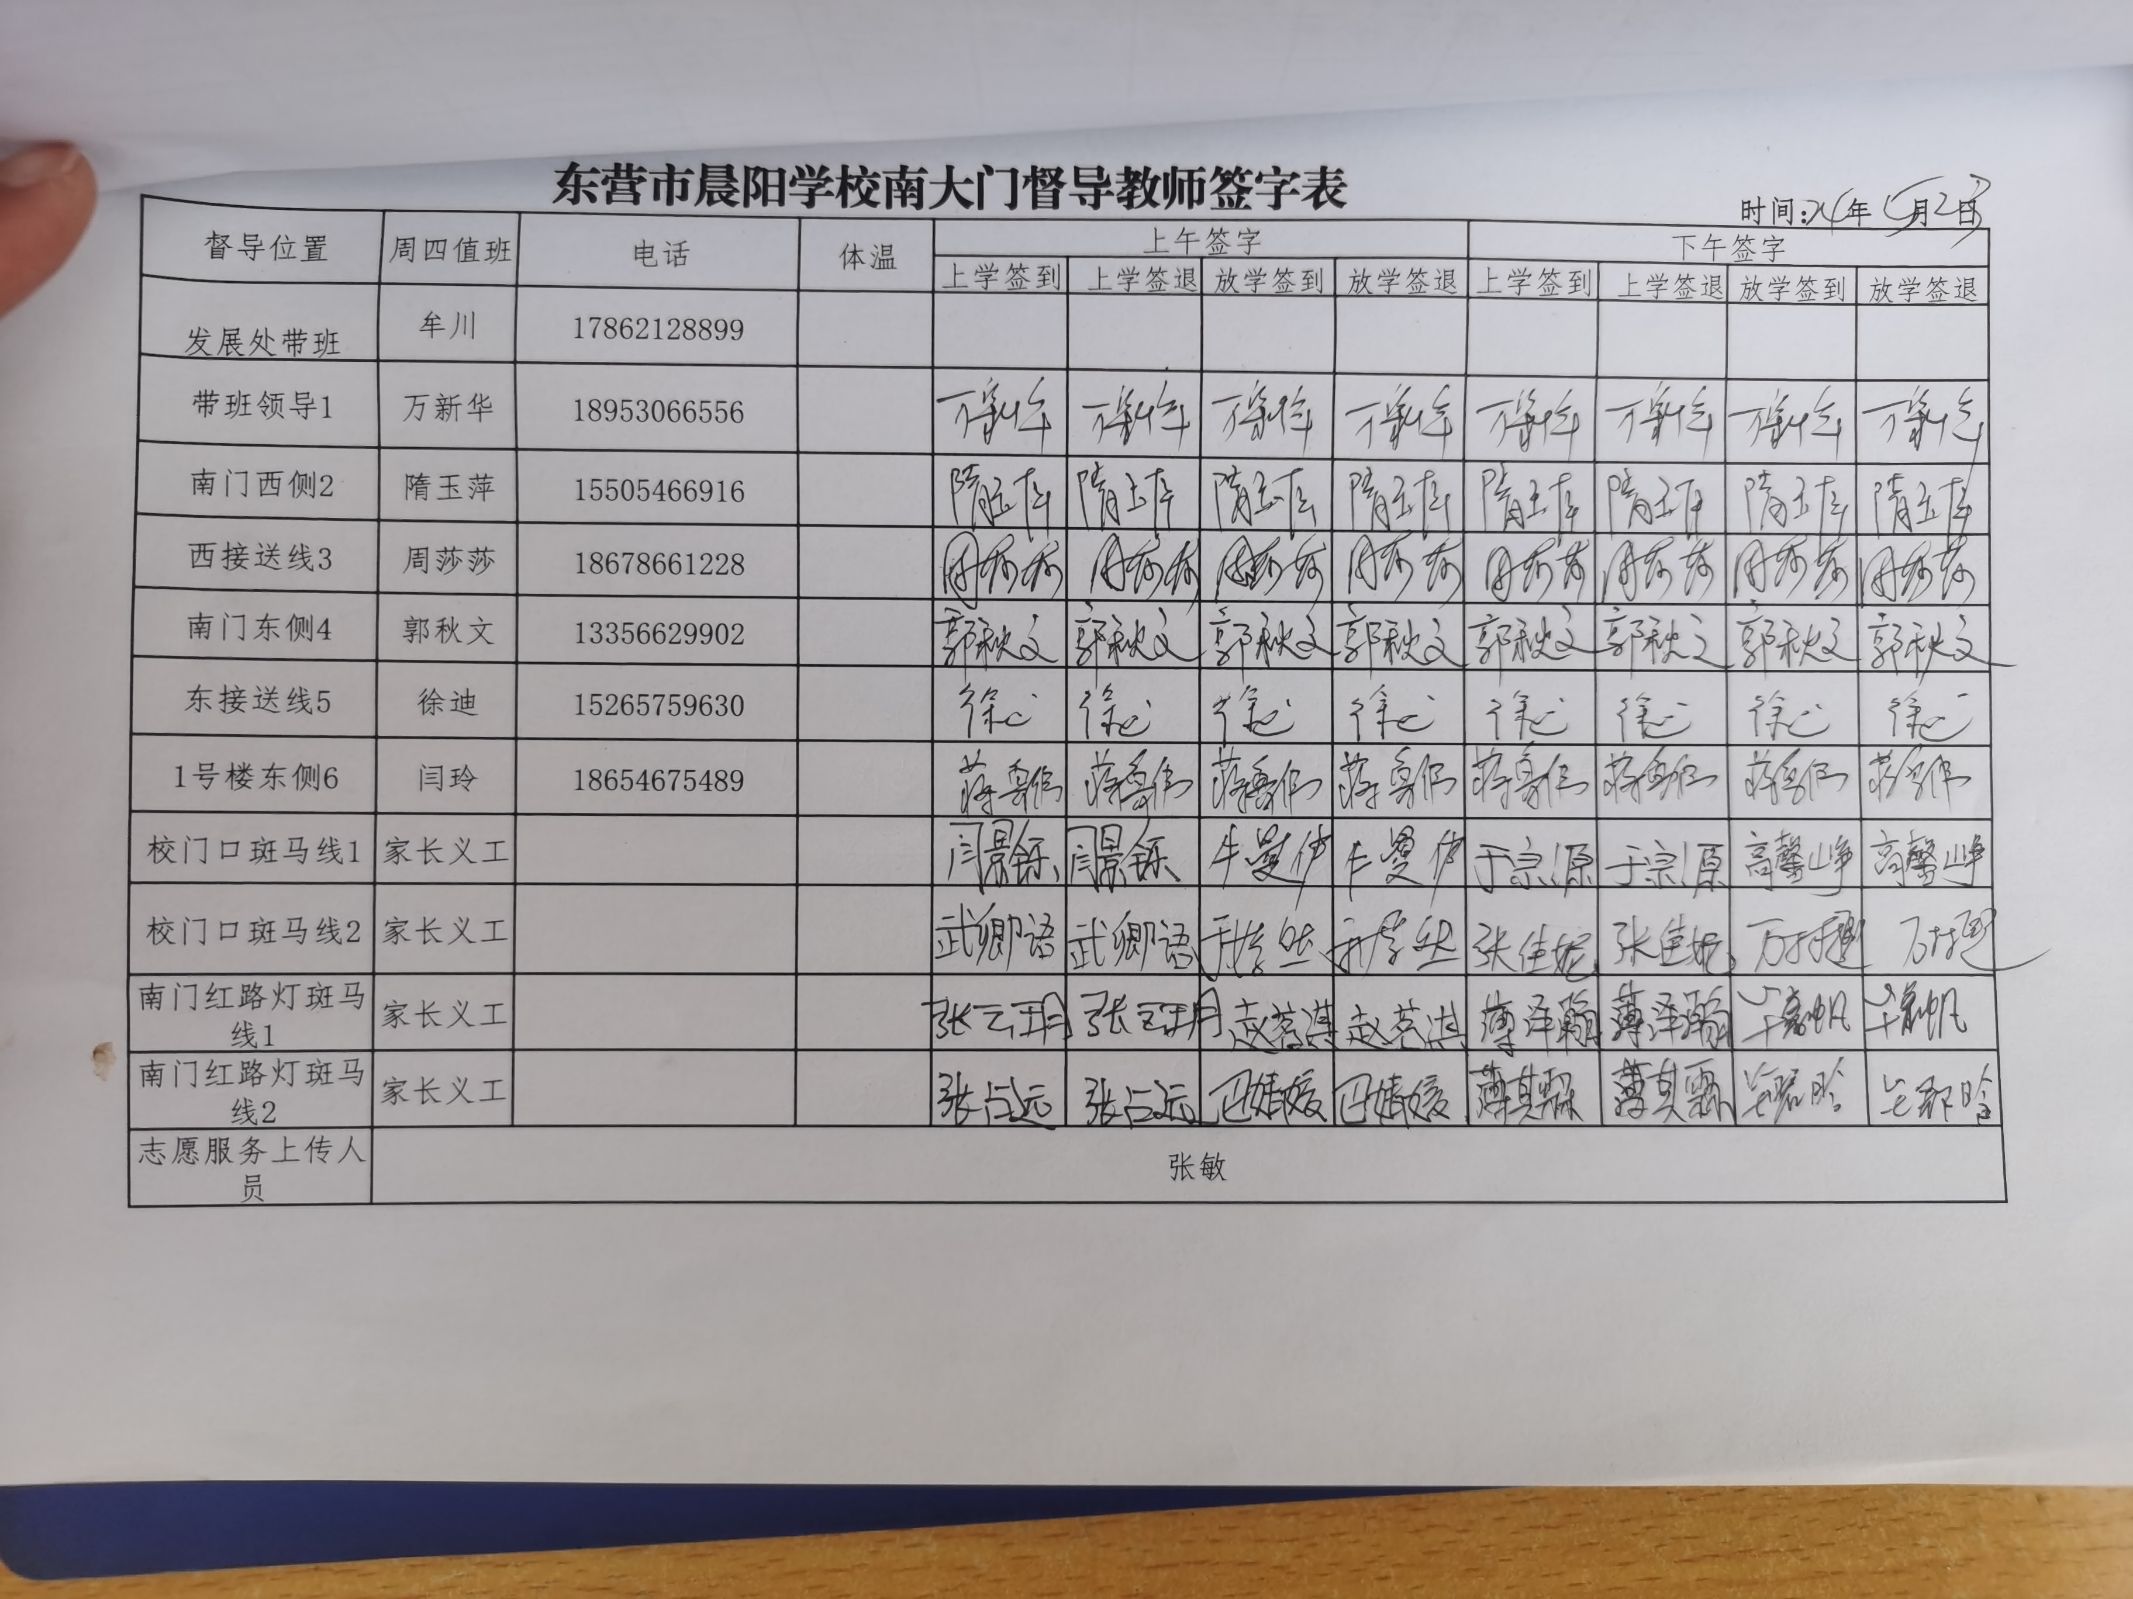 东营市晨阳学校南大门督导教师签字表
时间:24年 5月23日
督导位置 周四值班 电话 体温 上午签字 下午签字
上学签到 上学签退 放学签到 放学签退 上学签到 上学签退 放学签到 放学签退
发展处带班 牟川 17862128899
带班领导1 万新华 18953066556 万新华 万新华 万新华 万新华 万新华 万新华 万新华 万新华
南门西侧2 隋玉萍 15505466916 隋玉萍 隋玉萍 隋玉萍 隋玉萍 隋玉萍 隋玉萍 隋玉萍 隋玉萍
西接送线3 周莎莎 18678661228 周莎莎 周莎莎 周莎莎 周莎莎 周莎莎 周莎莎 周莎莎 周莎莎
南门东侧4 郭秋文 13356629902 郭秋文 郭秋文 郭秋文 郭秋文 郭秋文 郭秋文 郭秋文 郭秋文
东接送线5 徐迪 15265759630 徐迪 徐迪 徐迪 徐迪 徐迪 徐迪 徐迪 徐迪
1号楼东侧6 闫玲 18654675489
校门口斑马线1 家长义工 闫景铄 闫景铄 于宗源 于宗源 高馨峥 高馨峥
校门口斑马线2 家长义工 武卿语 武卿语 张佳妮 张佳妮
南门红路灯斑马
线1 家长义工 张云玥 张云玥 赵茗淇 赵茗淇 薄泽瀚 薄泽瀚
南门红路灯斑马
线2 家长义工 张占远 张占远 薄其霖 薄其霖
志愿服务上传人
员 张敏